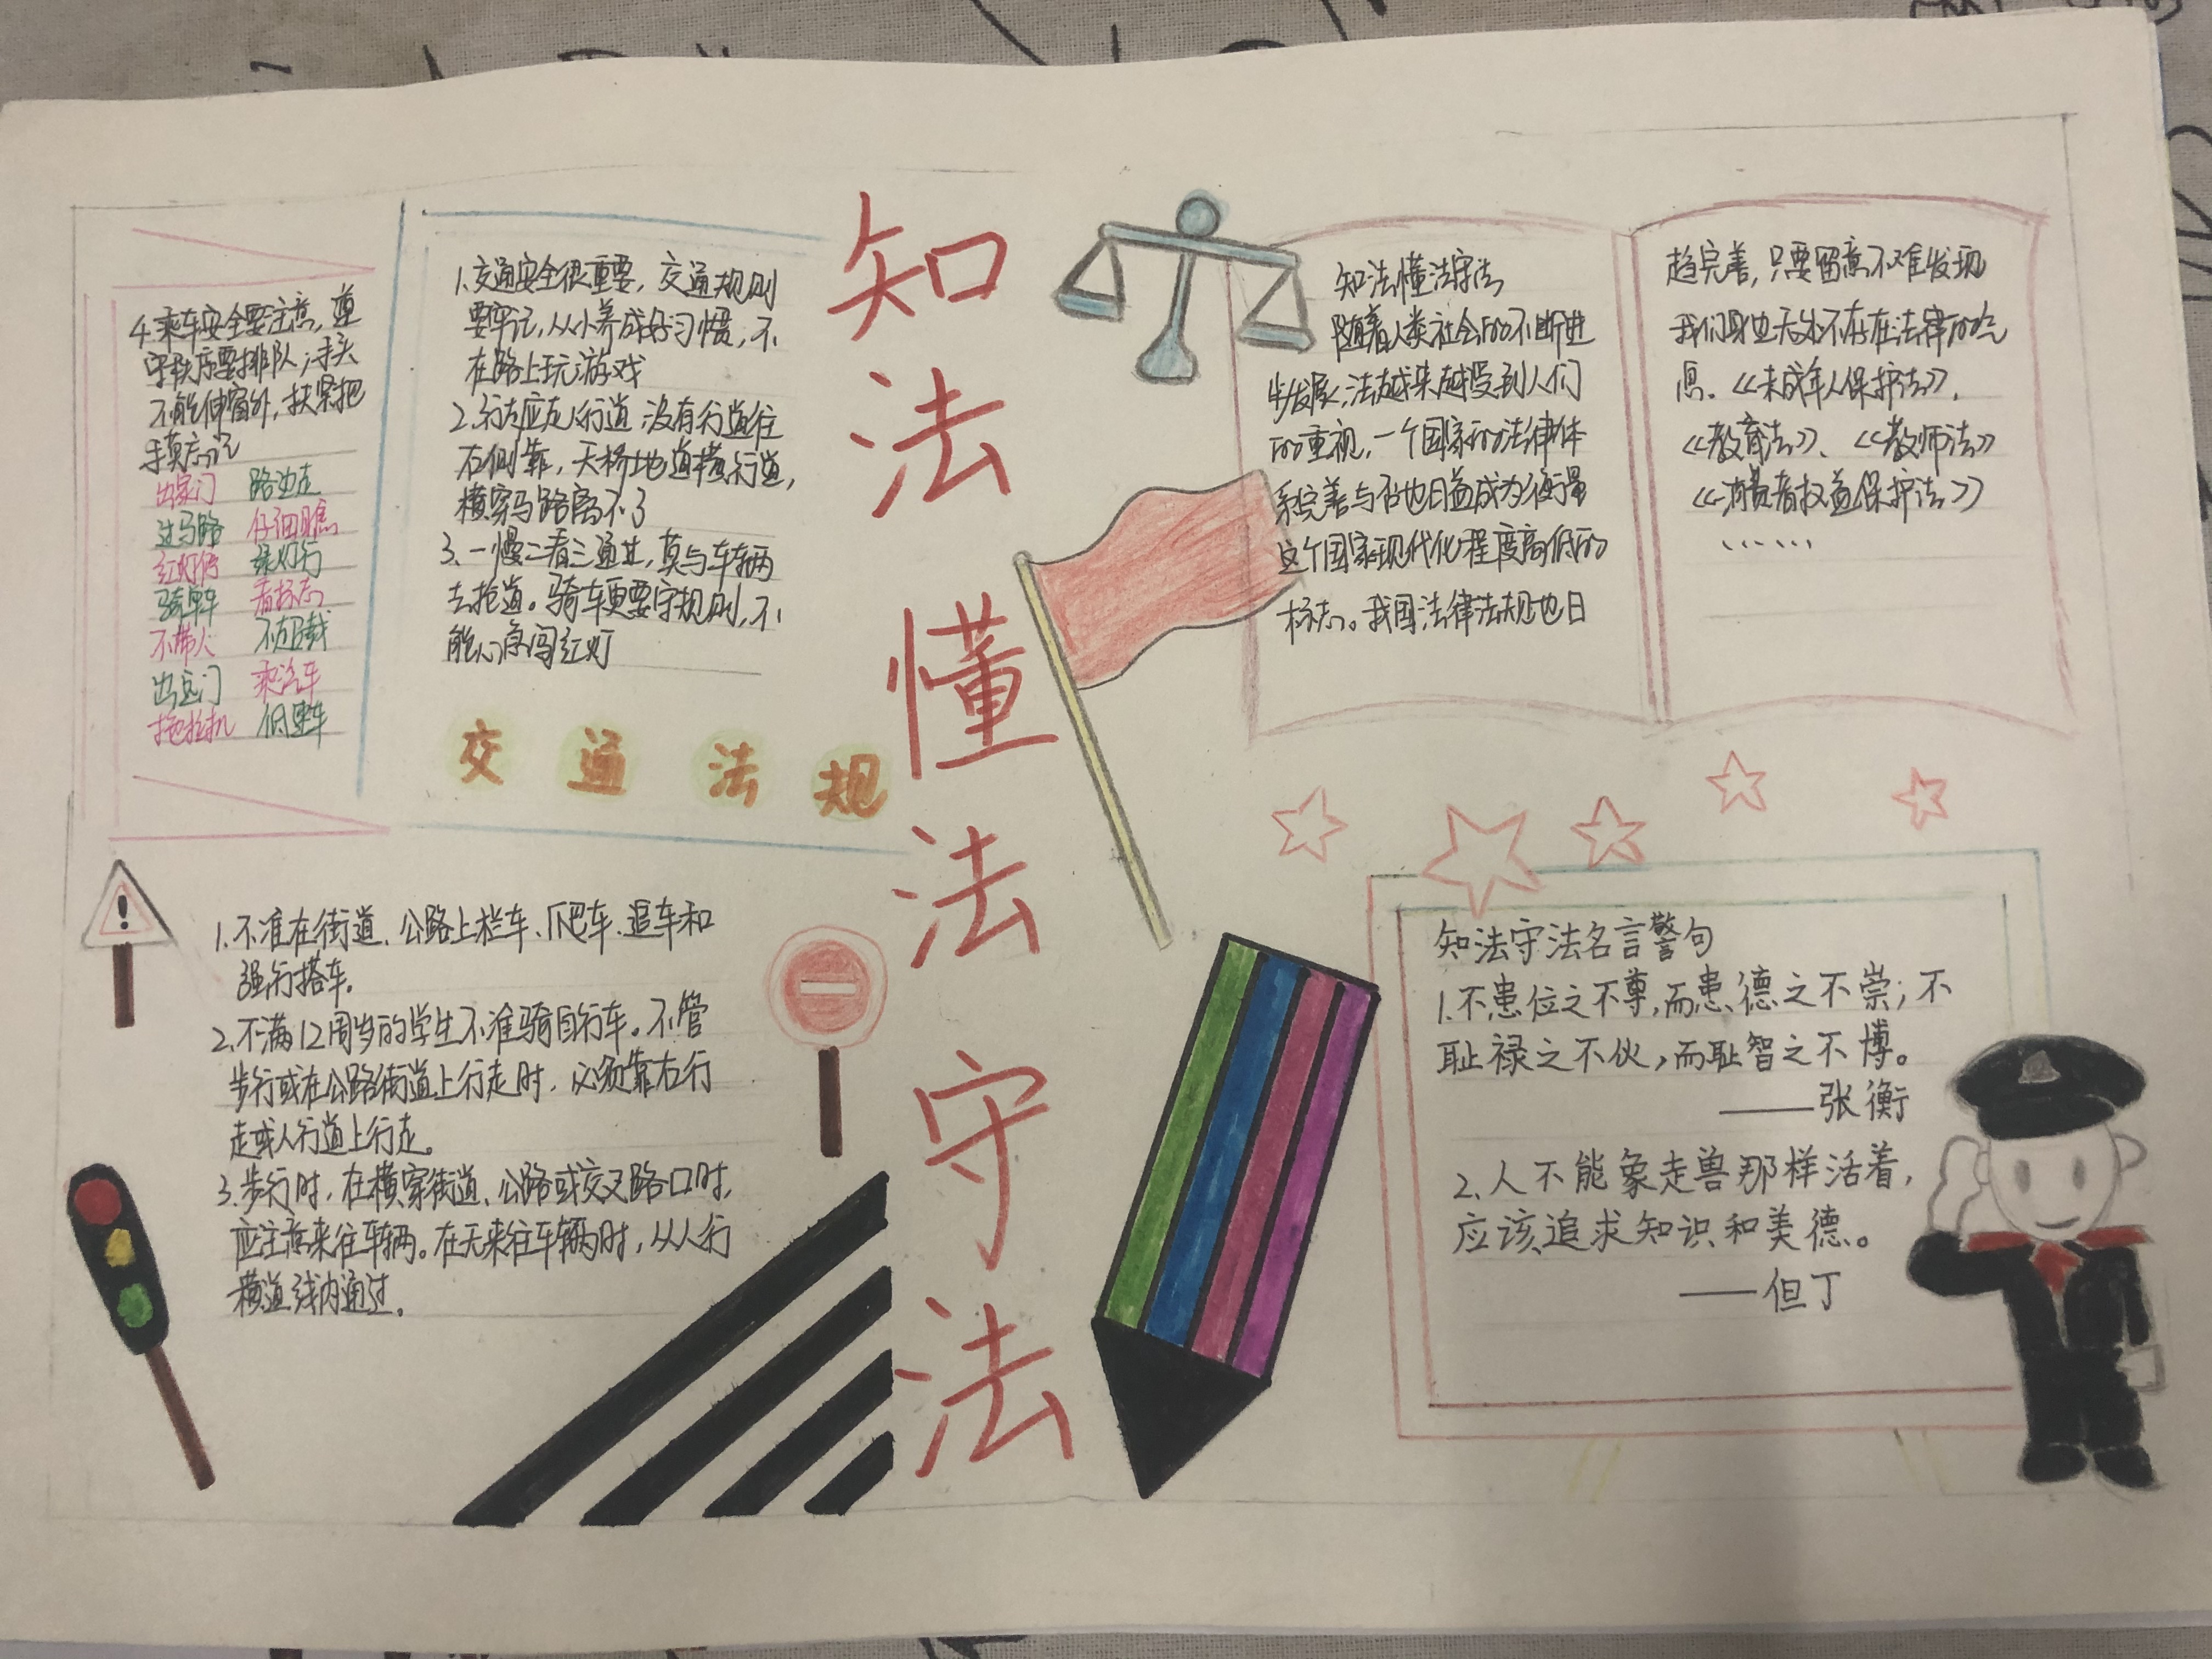 知
法
懂
法
守
法
1.交通安全很重要,交通规则
要牢记,从小养成好习惯,不
在路上玩游戏
2.行走应走人行道,没有行道往
右侧靠,天桥地道横行道,
横穿马路离不了
3.一慢二看三通过,莫与车辆
去抢道。骑车更要守规则,不
能心急闯红灯
交 通 法 规
4.乘车安全要注意,遵
守秩序要排队;手头
不能伸窗外,扶紧把
手莫忘记
出家门 路边走
过马路 仔细瞧
红灯停 绿灯行
骑单车 看标志
不带人 不超载
出远门 乘汽车
拖拉机
1.不准在街道、公路上栏车、爬车、追车和
强行搭车。
2.不满12周岁的学生不准骑自行车。不管
步行或在公路街道上行走时,必须靠右行
走或人行道上行走。
3.步行时,在横穿街道、公路或交叉路口时,
应注意来往车辆。在无来往车辆时,从人行
横道线内通过。
知法懂法守法
随着人类社会的不断进
步发展,法越来越受到人们
的重视,一个国家的法律体
系完善与否也日益成为衡量
这个国家现代化程度高低的
标志。我国法律法规也日
趋完善,只要留意不难发现
我们身边无处不存在法律的气
息。《未成年人保护法》、
《教育法》、《教师法》
《消费者权益保护法》
……
知法守法名言警句
1.不患位之不尊,而患德之不崇;不
耻禄之不伙,而耻智之不博。
——张衡
2.人不能象走兽那样活着,
应该追求知识和美德。
——但丁